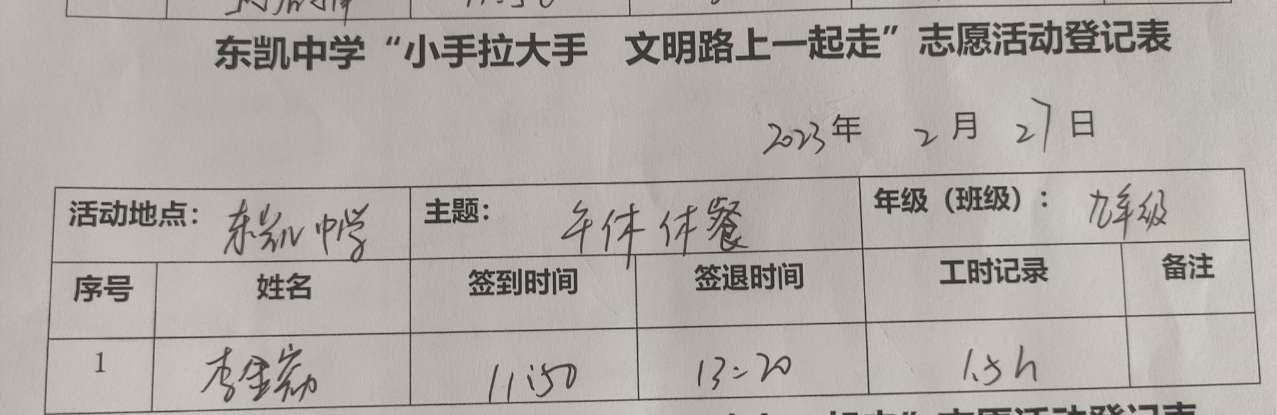 11:50
东凯中学“小手拉大手 文明路上一起走”志愿活动登记表
2023年 2月 27日
活动地点： 东凯中学 主题： 午休 休餐 年级（班级）： 九年级
序号 姓名 签到时间 签退时间 工时记录 备注
1 李 11:50 13:20 1.5h
起走”志愿活动登记表